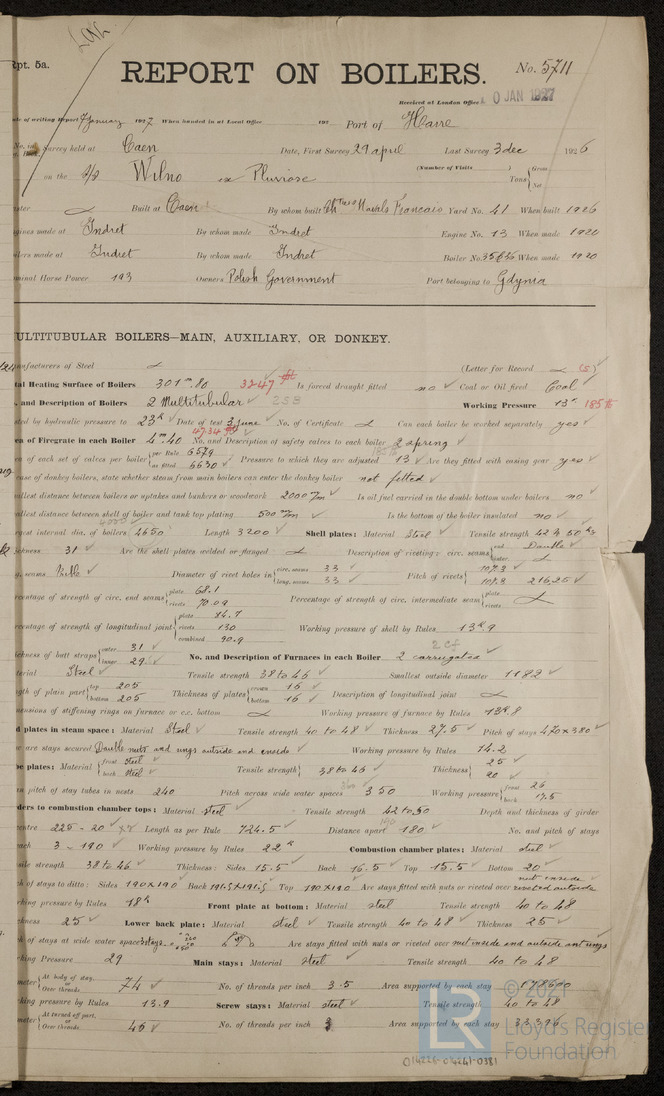 Rpt. 5a.
REPORT ON BOILERS.
No. 5711
Received at London Office 10 JAN 1927
of writing Report 7 January 1927 When handed in at Local Office 192 Port of Havre
Survey held at Caen Date, First Survey 29 april Last Survey 3 dec 1926
(Number of Visits
on the S/S Wilno ex Pluviose Tons { Gross Net
Built at Caen By whom built Ch Navals Francais Yard No. 41 When built 1926
made at Indret By whom made Indret Engine No. 13 When made 1920
made at Indret By whom made Indret Boiler No. When made 1920
Horse Power 193 Owners Polish Government Port belonging to Gdynia
MULTITUBULAR BOILERS—MAIN, AUXILIARY, OR DONKEY.
of Steel (Letter for Record (S)
Heating Surface of Boilers 301 m. 80 3247 Is forced draught fitted no Coal or Oil fired Coal
and Description of Boilers 2 Multitubular 2SB Working Pressure 13 185
by hydraulic pressure to 23 Date of test 3 June No. of Certificate Can each boiler be worked separately yes
of Firegrate in each Boiler 4 m. 40 No. and Description of safety valves to each boiler 2 spring
of each set of valves per boiler { per Rule 6579 as fitted 6630 Pressure to which they are adjusted 13 Are they fitted with easing gear yes
of donkey boilers, state whether steam from main boilers can enter the donkey boiler not fitted
distance between boilers or uptakes and bunkers or woodwork 2000 Is oil fuel carried in the double bottom under boilers no
distance between shell of boiler and tank top plating 500 Is the bottom of the boiler insulated no
internal dia. of boilers 4650 Length 3200 Shell plates: Material Steel Tensile strength 42 to 50
31 Are the shell plates welded or flanged Description of riveting: circ. seams { end Double
seams Diameter of rivet holes in { circ. seams 33 long. seams 33 Pitch of rivets { 107.3 216.25
percentage of strength of circ. end seams { plate 68.1 rivets 70.09 Percentage of strength of circ. intermediate seam { plate rivets
percentage of strength of longitudinal joint { plate 84.7 rivets 130 combined 90.9 Working pressure of shell by Rules 13.9
of butt straps { outer 31 inner 29 No. and Description of Furnaces in each Boiler 2 corrugated 2 Cf
Steel Tensile strength 38 to 46 Smallest outside diameter 1182
of plain part { top 205 bottom 205 Thickness of plates { crown 16 bottom 16 Description of longitudinal joint
of stiffening rings on furnace or c.c. bottom Working pressure of furnace by Rules 13.8
plates in steam space: Material Steel Tensile strength 40 to 48 Thickness 27.5 Pitch of stays 470 x 380
are stays secured Double nuts and rings outside and inside Working pressure by Rules 14.2
plates: Material { front steel back steel Tensile strength { 38 to 46 Thickness { 25 20
pitch of stay tubes in nests 240 Pitch across wide water spaces 350 Working pressure { front 25 back 17.5
to combustion chamber tops: Material steel Tensile strength 42 to 50 Depth and thickness of girder
centre 225 - 20 Length as per Rule 724.5 Distance apart 180 No. and pitch of stays
3 - 190 Working pressure by Rules 22 Combustion chamber plates: Material steel
strength 38 to 46 Thickness: Sides 15.5 Back 16.5 Top 15.5 Bottom 20
of stays to ditto: Sides 190x190 Back 191.5x191.5 Top 190x190 Are stays fitted with nuts or riveted over nut inside riveted outside
pressure by Rules 18 Front plate at bottom: Material steel Tensile strength 40 to 48
25 Lower back plate: Material steel Tensile strength 40 to 48 Thickness 25
of stays at wide water space Are stays fitted with nuts or riveted over nut inside and outside and rings
Pressure 29 Main stays: Material steel Tensile strength 40 to 48
{ At body of stay, Over threads 74 No. of threads per inch 3.5 Area supported by each stay 178600
pressure by Rules 13.9 Screw stays: Material steel Tensile strength 40 to 48
{ At turned off part, Over threads 45 No. of threads per inch Area supported by each stay 33396
© 2021
LR
Lloyd's Register
Foundation
014226-014241-0381